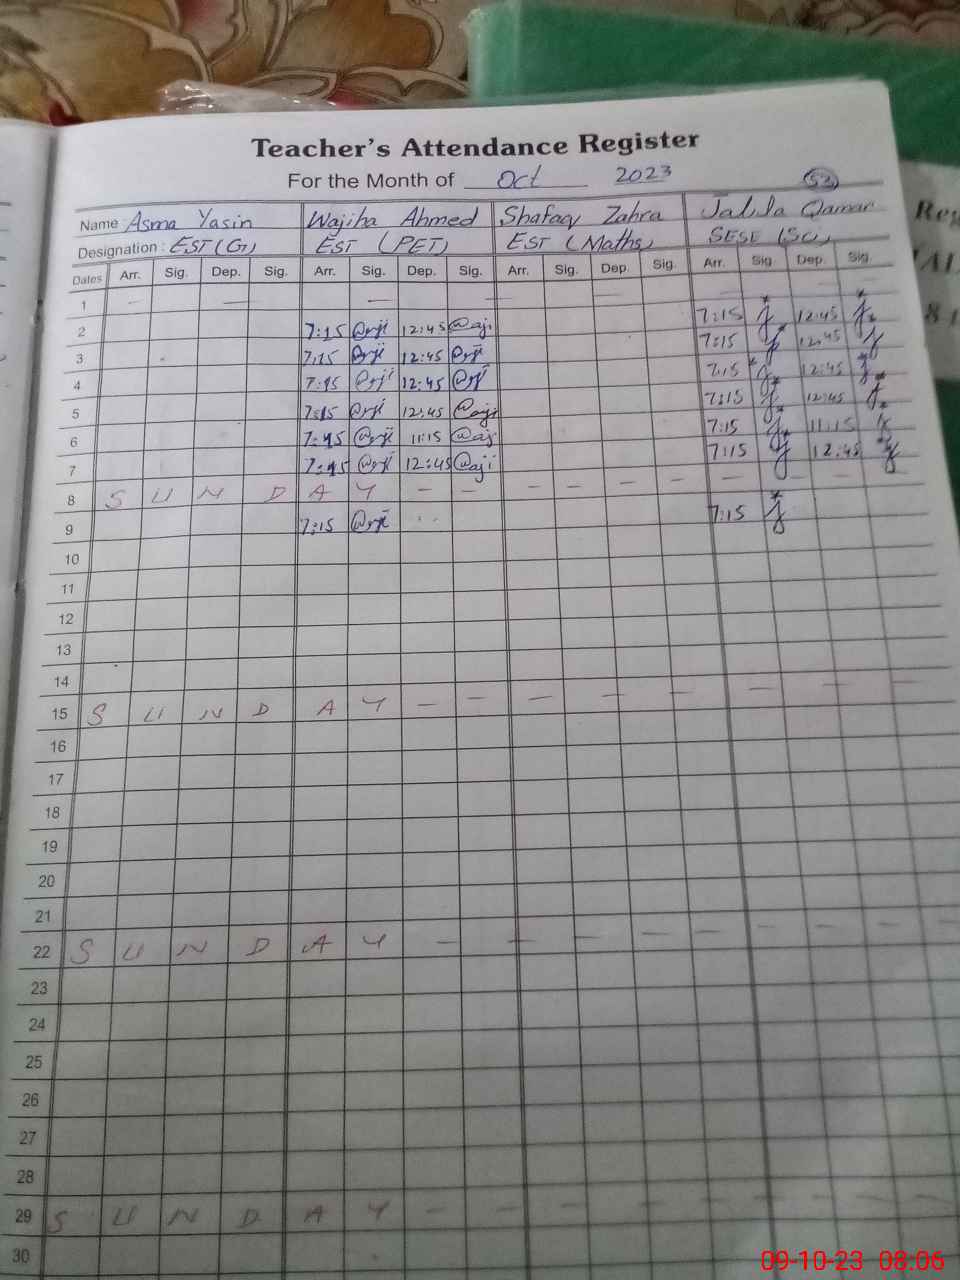 Teacher's Attendance Register
For the Month of Oct 2023 52
Name : Asma Yasin Wajiha Ahmed Shafaq Zahra Jalila Qamar
Designation : EST (G) EST (PET) EST (Maths) SESE (SC)
Dates Arr. Sig. Dep. Sig. Arr. Sig. Dep. Sig. Arr. Sig. Dep. Sig. Arr. Sig. Dep. Sig.
1 — — — — —
2 7:15 12:45 7:15 12:45
3 7:15 12:45 7:15 12:45
4 7:15 12:45 7:15 12:45
5 7:15 12:45 7:15 12:45
6 7:15 11:15 7:15 11:15
7 7:15 12:45 7:15 12:45
8 S U N D A Y — — — — — — — — — —
9 7:15 7:15
10
11
12
13
14
15 S U N D A Y — — — — — — — —
16
17
18
19
20
21
22 S U N D A Y — — — — — — — — —
23
24
25
26
27
28
29 S U N D A Y — — — — — — — — — —
30
09-10-23 08:06